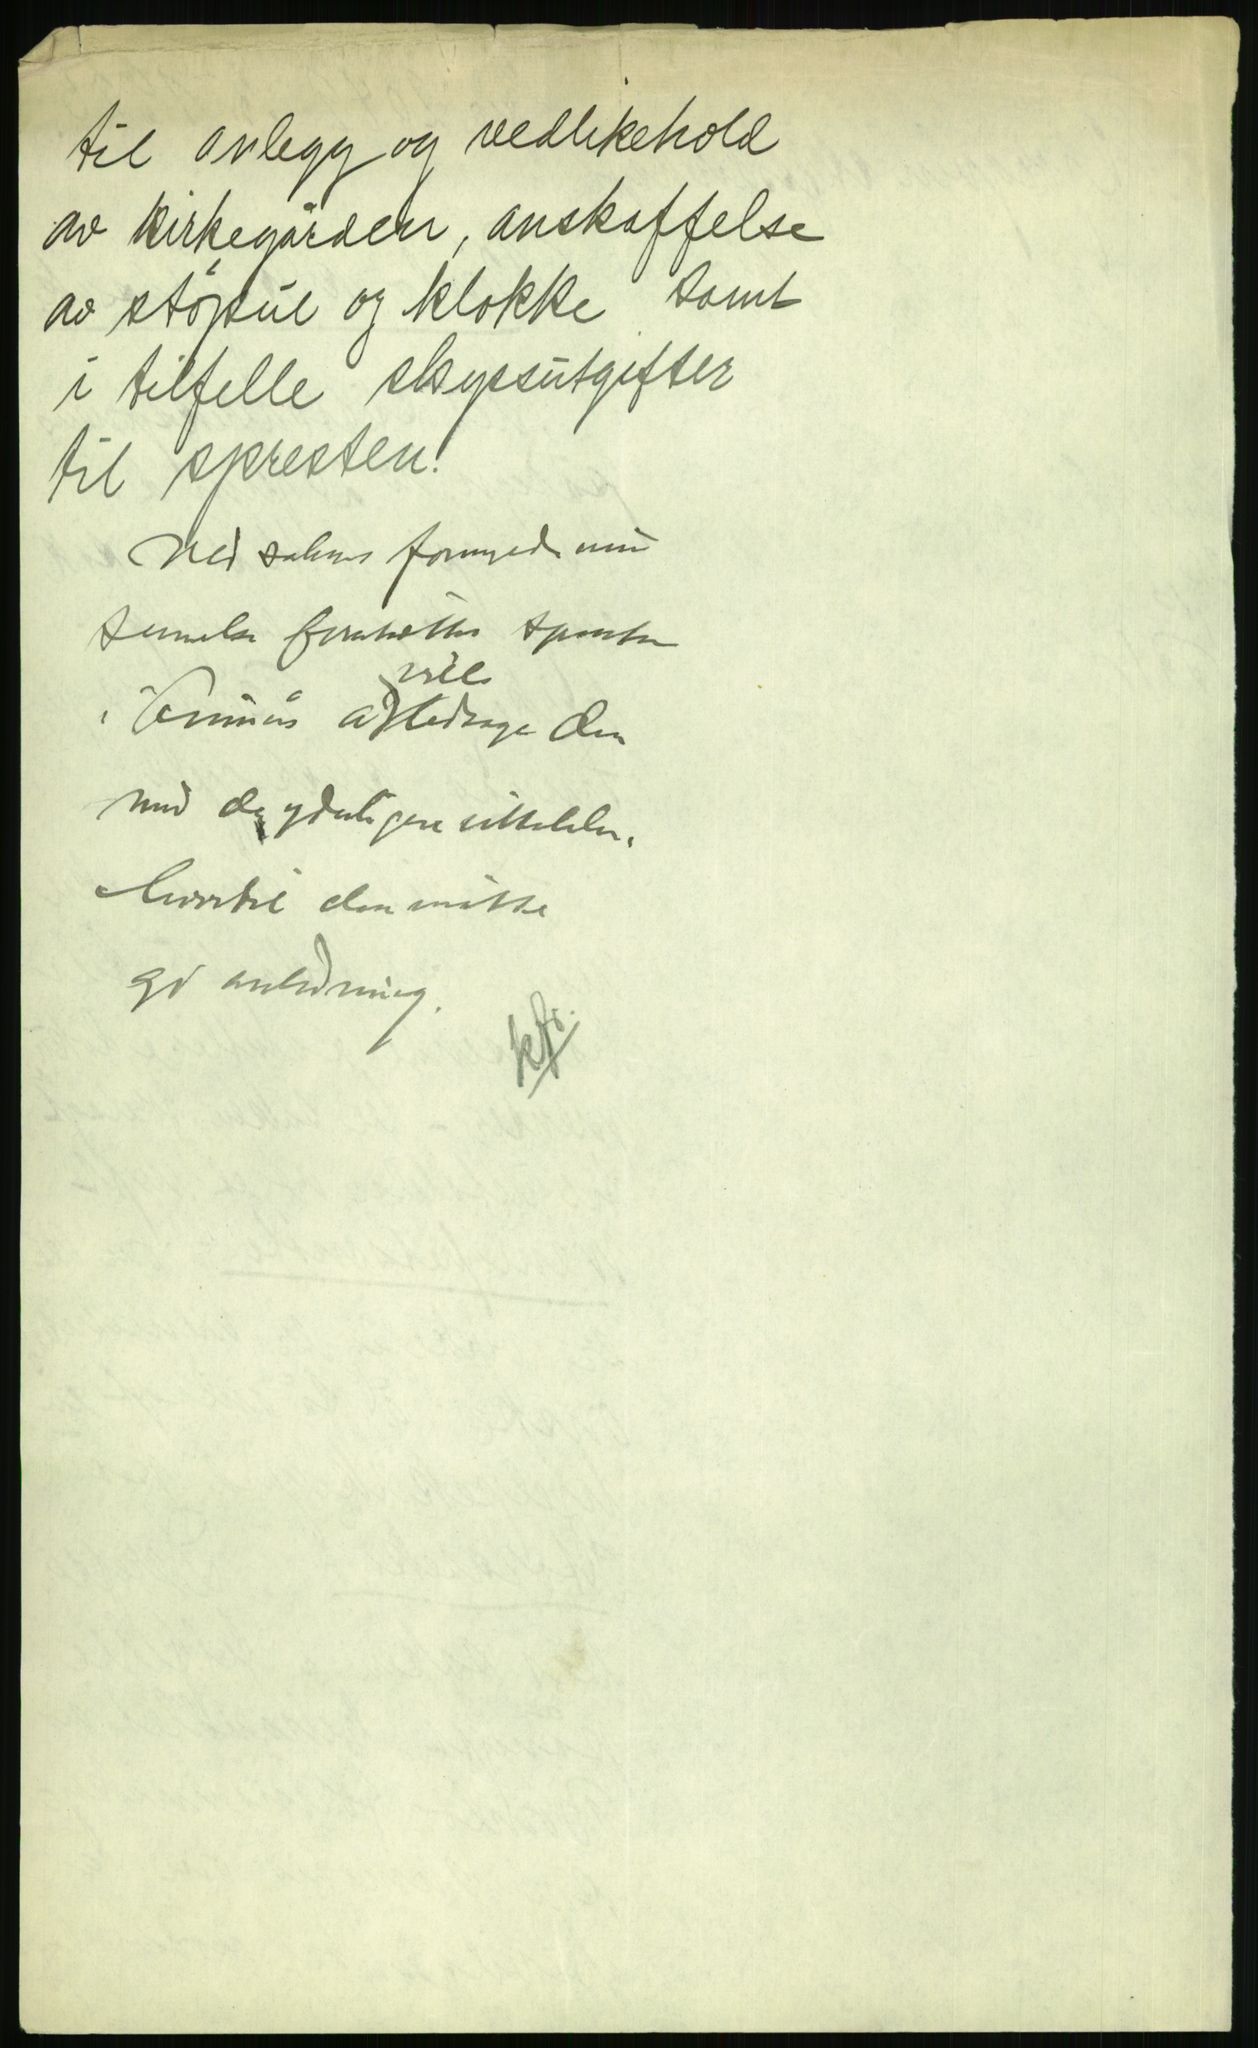 til anlegg og vedlikehold
av kirkegården, anskaffelse
av støpul og klokke samt
i tilfelle skyssutgifter
til spresten.
Ved sakens fornyede
spresten
i at vil ledsage den
med de yderligere uttalelser,
hvortil den måtte
gi anledning.